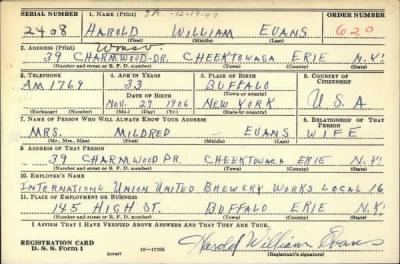 SERIAL NUMBER 1. NAME (Print) ORDER NUMBER
2408 HAROLD WILLIAM EVANS 620
(First) (Middle) (Last)
2. ADDRESS (Print)
39 CHARMWOOD-DR. CHEEKTOWAGA ERIE N.Y.
(Number and street or R. F. D. number) (Town) (County) (State)
3. TELEPHONE 4. AGE IN YEARS 5. PLACE OF BIRTH 6. COUNTRY OF CITIZENSHIP
AM 1769 33 BUFFALO
DATE OF BIRTH (Town or county)
NOV. 29 1906 NEW YORK U.S.A
(Exchange) (Number) (Mo.) (Day) (Yr.) (State or country)
7. NAME OF PERSON WHO WILL ALWAYS KNOW YOUR ADDRESS 8. RELATIONSHIP OF THAT PERSON
MRS. MILDRED - EVANS WIFE
(Mr., Mrs., Miss) (First) (Middle) (Last)
9. ADDRESS OF THAT PERSON
39 CHARMWOOD DR. CHEEKTOWAGA ERIE N.Y.
(Number and street or R. F. D. number) (Town) (County) (State)
10. EMPLOYER'S NAME
INTERNATIONL UNION UNITED BREWERY WORKS LOCAL 16
11. PLACE OF EMPLOYMENT OR BUSINESS
145 HIGH ST. BUFFALO ERIE N.Y.
(Number and street or R. F. D. number) (Town) (County) (State)
I AFFIRM THAT I HAVE VERIFIED ABOVE ANSWERS AND THAT THEY ARE TRUE.
REGISTRATION CARD
D. S. S. FORM 1 (over) 16-17105 Harold William Evans
(Registrant's signature)